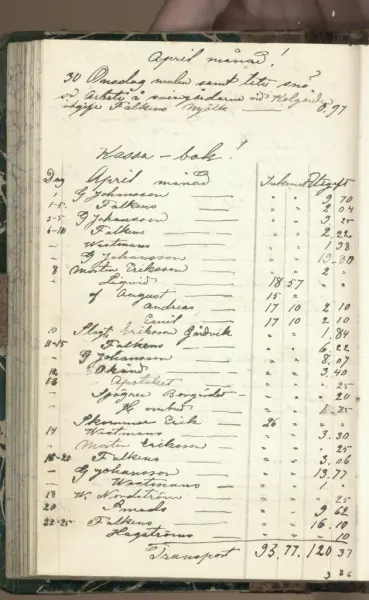 April månad!
30 Onsdag mulet samt lite snö
Arbete å svingårdarne vid
utgift Falkens Mjölk — 0,97
Kassa-bok!
Dag April månad Inkomst Utgift
1 G Johansson — " " 9 70
1-5 Falkens — " " 2 04
2-5 G Johansson — " " 3 25
6-10 Falkens — " " 2 22
— Wästmans — " " 1 38
— G Johansson — " " 19 80
8 Morten Eriksson — " " 2 "
" Liqvid — 18 57 " "
af August — 15 " " "
Andreas — 17 10 2 10
Emil — 17 10 2 10
10 Slagt Eriksson Gårdvik " " 1,84
11-15 Falkens — " " 6 22
— G Johansson — " " 8 07
12 Okänd — " " 3.40
13 Apoteket — " " " 25
— Sjögren — " " " 20
— ombud — " " 1 25
Skommar Erik — 26 " " "
14 Wästmans — " " 3.30
— Morten Eriksson — " " " 25
16-20 Falkens — " " 3 06
— G Johansson — " " 13,77
— Wästmans — " " 1,
18 W. Nordström — " " " 25
20 Smeds — " " 9 62
22-25 Falkens — " " 16 10
Hagströms — " " " 10
Transport 93.77. 120 37